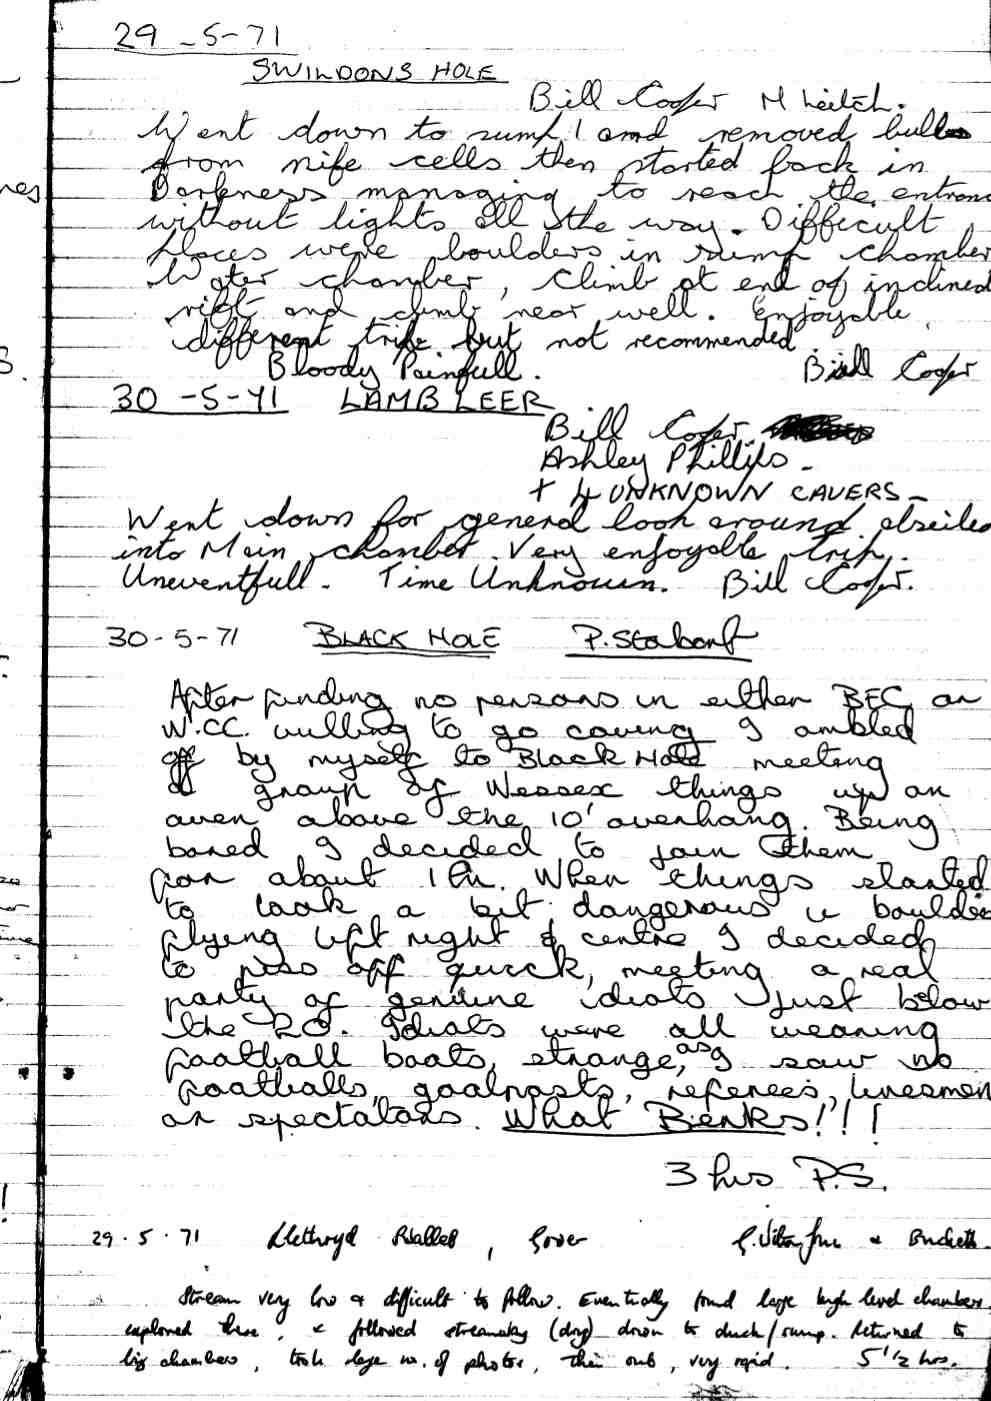 29-5-71
SWILDONS HOLE
Bill Cooper M Leitch.
Went down to sump 1 and removed bulbs
from nife cells then started back in
Darkness managing to reach the entran
without lights all the way. Difficult
places were boulders in sump chamber
Water chamber, Climb at end of inclined
rift and climb near well. Enjoyable,
different trip but not recommended.
Bloody Painfull. Bill Cooper
30-5-71 LAMB LEER
Bill Cooper
Ashley Phillips -
+ 4 UNKNOWN CAVERS -
Went down for general look around abseiled
into Main chamber. Very enjoyable trip.
Uneventfull. Time Unknown. Bill Cooper.
30-5-71 BLACK HOLE P.
After finding no persons in either BEC or
W.CC. willing to go caving I ambled
off by myself to Black Hole meeting
a group of Wessex things up an
aven above the 10' overhang. Being
bored I decided to join them
for about 1 hr. When things started
to look a bit dangerous ie boulders
flying left right & centre I decided
to piss off quick, meeting a real
party of genuine idiots just below
the 20. Idiots were all wearing
football boots, strange, as I saw no
footballs, goalposts, referees, linesmen
or spectators. What Berks!!!
3 hrs P.S.
29.5.71 Llethryd , Gower &
Stream very low & difficult to follow. Eventually found large high level chambers,
explored these, & followed streamway (dry) down to duck/sump. Returned to
big chambers, took large no. of photos, then out, very rapid. 5 1/2 hrs.